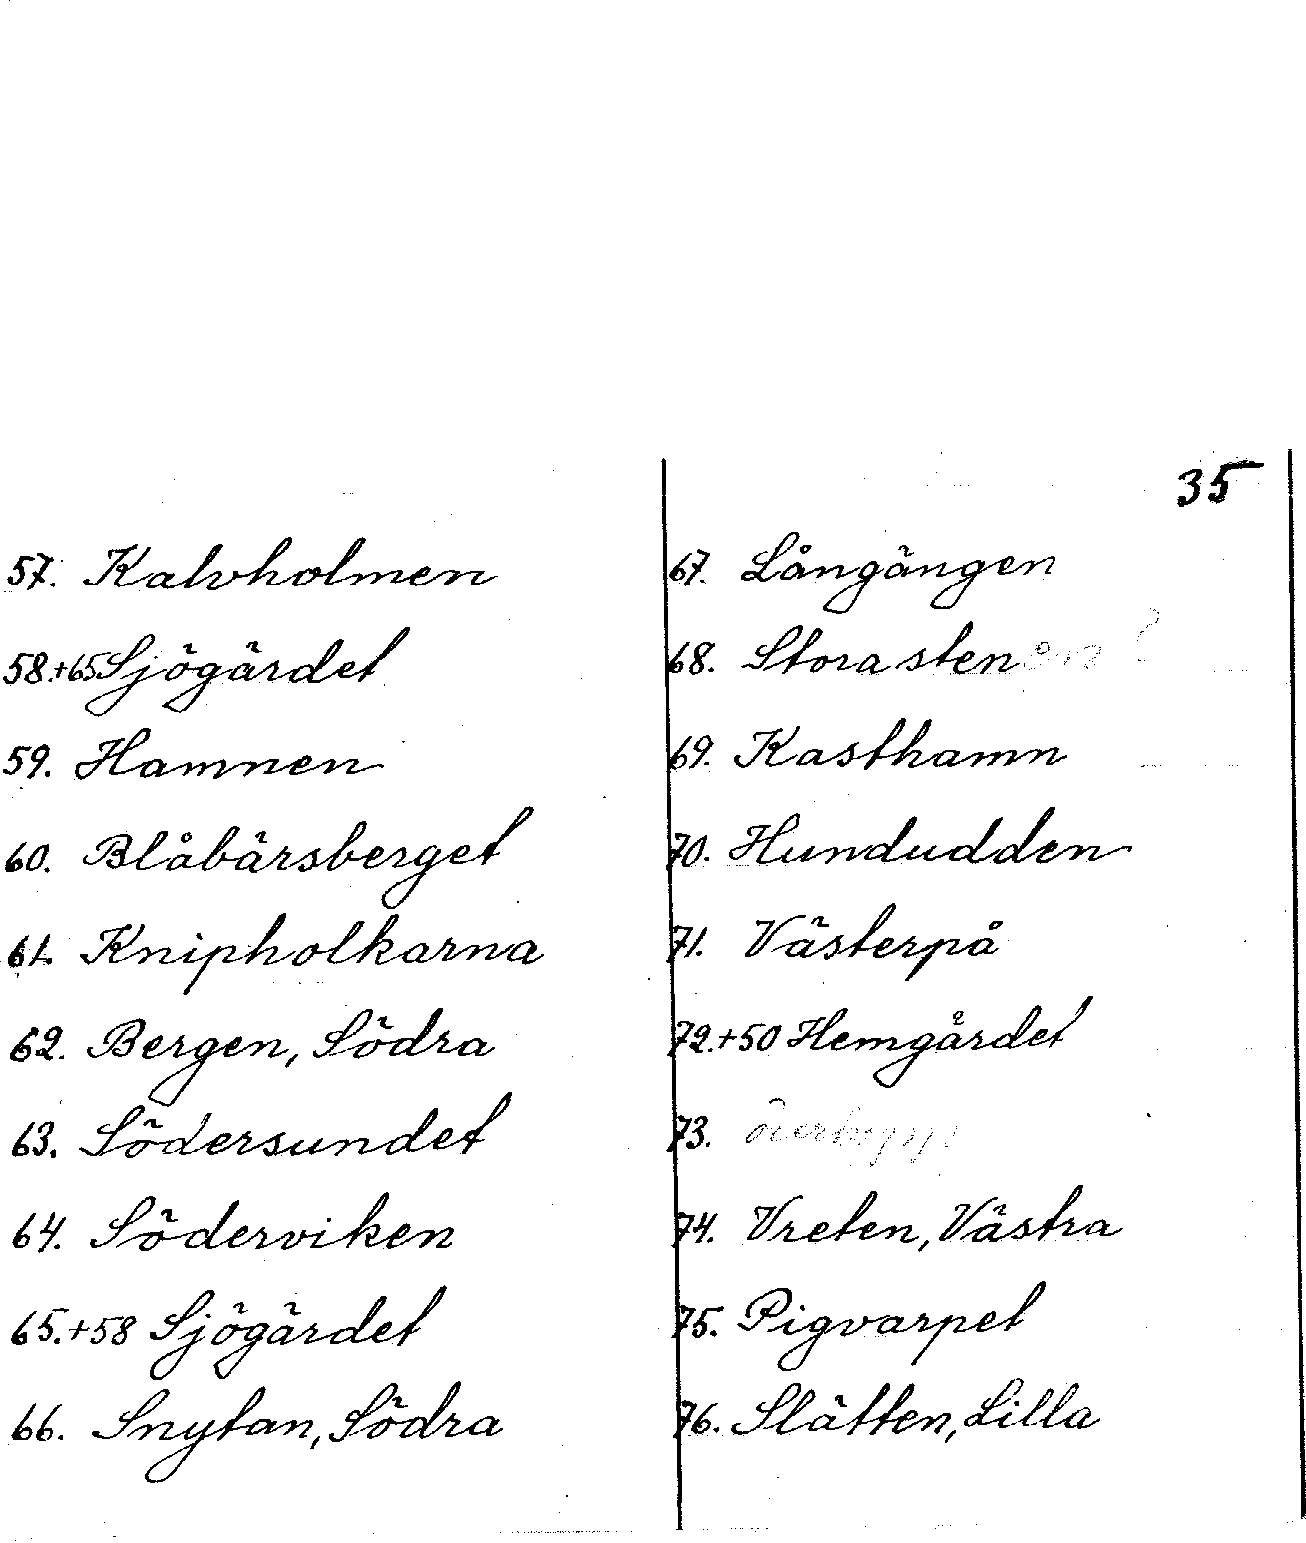 35
57. Kalvholmen
58.+65 Sjögärdet
59. Hamnen
60. Blåbärsberget
61. Knipholkarna
62. Bergen, Södra
63. Södersundet
64. Söderviken
65.+58 Sjögärdet
66. Snytan, Södra
67. Långängen
68. Stora sten
69. Kasthamn
70. Hundudden
71. Västerpå
72.+50 Hemgärdet
73.
74. Vreten, Västra
75. Pigvarpet
76. Slätten, Lilla